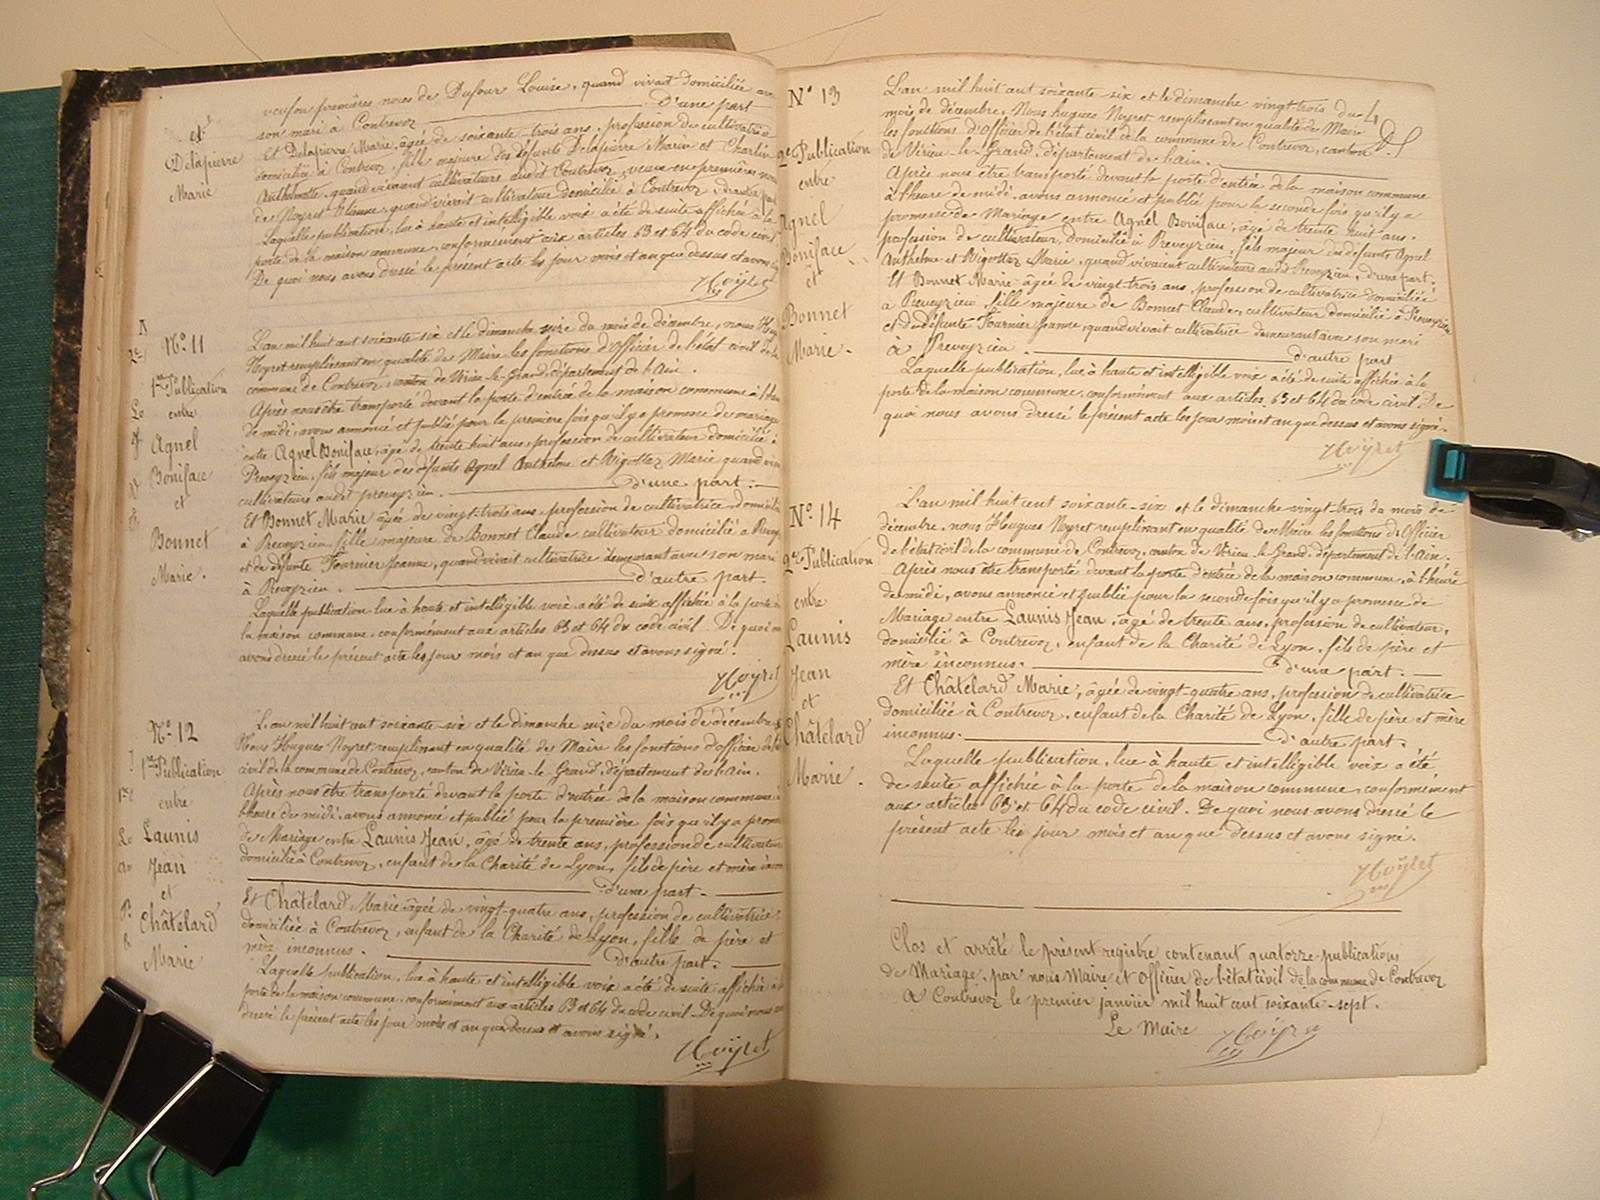 et
Delapierre
Marie
veuf en premières noces de Dufour Louise, quand vivait domiciliée avec
son mari à Contrevoz d'une part
Et Delapierre Marie, âgée de soixante trois ans, profession de cultivatrice
domiciliée à Contrevoz, fille majeure des défunts Delapierre Marin et Charlin
Anthelmette, quand vivaient cultivateurs audit Contrevoz, veuve en premières noces
de Neyret Etienne, quand vivait cultivateur domicilié à Contrevoz, d'autre part
Laquelle publication, lue à haute et intelligible voix a été de suite affichée à la
porte de la maison commune, conformément aux articles 63 et 64 du code civil
De quoi nous avons dressé le présent acte les jour mois et an que dessus et avons
Noÿret
N° 11
1re Publication
entre
Agnel
Boniface
et
Bonnet
Marie.
L'an mil huit cent soixante six et le dimanche seize du mois de décembre, nous
Noyret remplissant en qualité de Maire les fonctions d'officier de l'état civil de la
commune de Contrevoz, canton de Virieu-le-Grand, département de l'Ain.
Après nous être transporté devant la porte d'entrée de la maison commune à l'heure
de midi, avons annoncé et publié pour la première fois qu'il y a promesse de mariage
entre Agnel Boniface, âgé de trente huit ans, profession de cultivateur domicilié à
Preveyzieu, fils majeur des défunts Agnel Anthelme et Rigottaz Marie quand
cultivateurs audit preveyzieu. d'une part.
Et Bonnet Marie âgée de vingt-trois ans, profession de cultivatrice
à Preveyzieu, fille majeure de Bonnet Claude cultivateur domicilié à
et de défunte Fournier Jeanne, quand vivait cultivatrice demeurant avec son mari
à Preveyzieu. d'autre part.
Laquelle publication lue à haute et intelligible voix a été de suite affichée à la porte
la maison commune, conformément aux articles 63 et 64 du code civil. De quoi
avons dressé le présent acte les jour mois et an que dessus et avons signé.
Noÿret
N° 12
1re Publication
entre
Launis
Jean
et
Châtelard
Marie
L'an mil huit cent soixante-six et le dimanche seize du mois de décembre,
Nous Hugues Noyret remplissant en qualité de Maire les fonctions d'officier de l'état
civil de la commune de Contrevoz, canton de Virieu-le-Grand, département de l'Ain.
Après nous être transporté devant la porte d'entrée de la maison commune à
l'heure de midi, avons annoncé et publié pour la première fois qu'il y a
de Mariage entre Launis Jean, âgé de trente ans, profession de cultivateur
domicilié à Contrevoz, enfant de la Charité de Lyon, fils de père et mère
d'une part.
Et Châtelard Marie âgée de vingt-quatre ans, profession de cultivatrice
domiciliée à Contrevoz, enfant de la Charité de Lyon, fille de père et
mère inconnus. d'autre part.
Laquelle publication, lue à haute et intelligible voix a été de suite affichée à
porte de la maison commune, conformément aux articles 63 et 64 du code civil. De quoi nous
dressé le présent acte les jour mois et an que dessus et avons signé.
Noÿret
N° 13
2e Publication
entre
Agnel
Boniface
et
Bonnet
Marie.
L'an mil huit cent soixante six et le dimanche vingt trois du
mois de décembre, Nous hugues Noyret remplissant en qualité de Maire
les fonctions d'Officier de l'état civil de la commune de Contrevoz, canton
de Virieu-le-Grand, département de l'Ain.
Après nous être transporté devant la porte d'entrée de la maison commune
à l'heure de midi, avons annoncé et publié pour la seconde fois qu'il y a
promesse de Mariage entre Agnel Boniface, âgé de trente huit ans,
profession de cultivateur, domicilié à Preveyzieu, fils majeur des défunts Agnel
Anthelme et Rigottaz Marie, quand vivaient cultivateurs audit Preveyzieu, d'une part.
Et Bonnet Marie âgée de vingt trois ans, profession de cultivatrice domiciliée
a Preveyzieu fille majeure de Bonnet Claude, cultivateur domicilié à Preveyzieu
et de défunte Fournier Jeanne, quand vivait cultivatrice demeurant avec son mari
à Preveyzieu. d'autre part
Laquelle publication, lue à haute et intelligible voix a été de suite affichée à la
porte de la maison commune, conformément aux articles 63 et 64 du code civil. De
quoi nous avons dressé le présent acte les jour mois et an que dessus et avons signé.
Noÿret
N° 14
2e Publication
entre
Launis
Jean
et
Châtelard
Marie.
L'an mil huit cent soixante-six et le dimanche vingt-trois du mois de
décembre, nous Hugues Noyret remplissant en qualité de Maire les fonctions d'Officier
de l'état civil de la commune de Contrevoz, canton de Virieu-le-Grand, département de l'Ain.
Après nous être transporté devant la porte d'entrée de la maison commune, à l'heure
de midi, avons annoncé et publié pour la seconde fois qu'il y a promesse de
Mariage entre Launis Jean, âgé de trente ans, profession de cultivateur,
domicilié à Contrevoz, enfant de la Charité de Lyon, fils de père et
mère inconnus. d'une part.
Et Châtelard Marie, âgée de vingt-quatre ans, profession de cultivatrice
domiciliée à Contrevoz, enfant de la Charité de Lyon, fille de père et mère
inconnus. d'autre part.
Laquelle publication, lue à haute et intelligible voix a été
de suite affichée à la porte de la maison commune, conformément
aux articles 63 et 64 du code civil. De quoi nous avons dressé le
présent acte les jour mois et an que dessus et avons signé.
Noÿret
Clos et arrêté le présent registre contenant quatorze publications
de Mariage, par nous Maire et Officier de l'état civil de la commune de Contrevoz
A Contrevoz le premier janvier mil huit cent soixante-sept.
Le Maire Noÿret